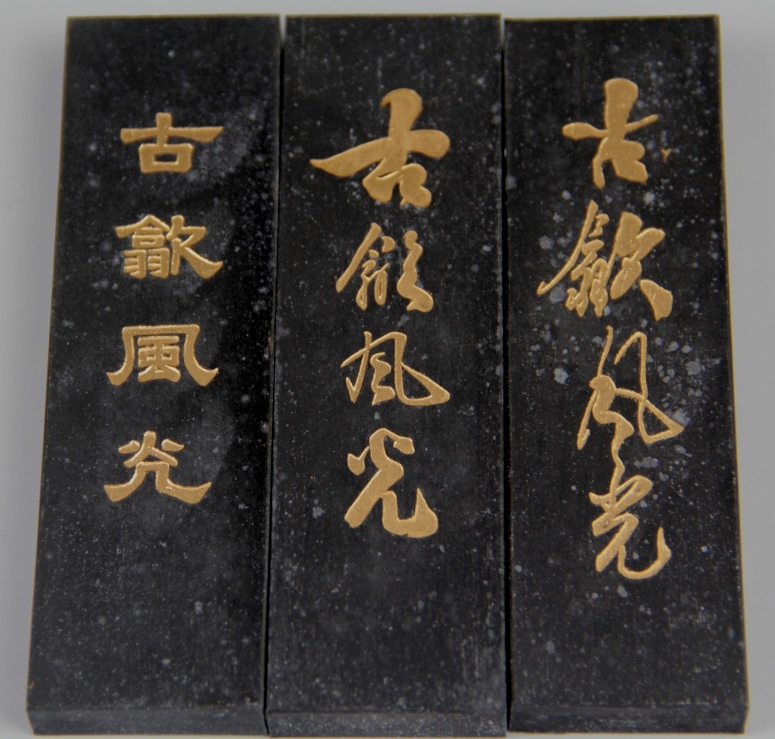 古歙風光
古歙風光
古歙風光